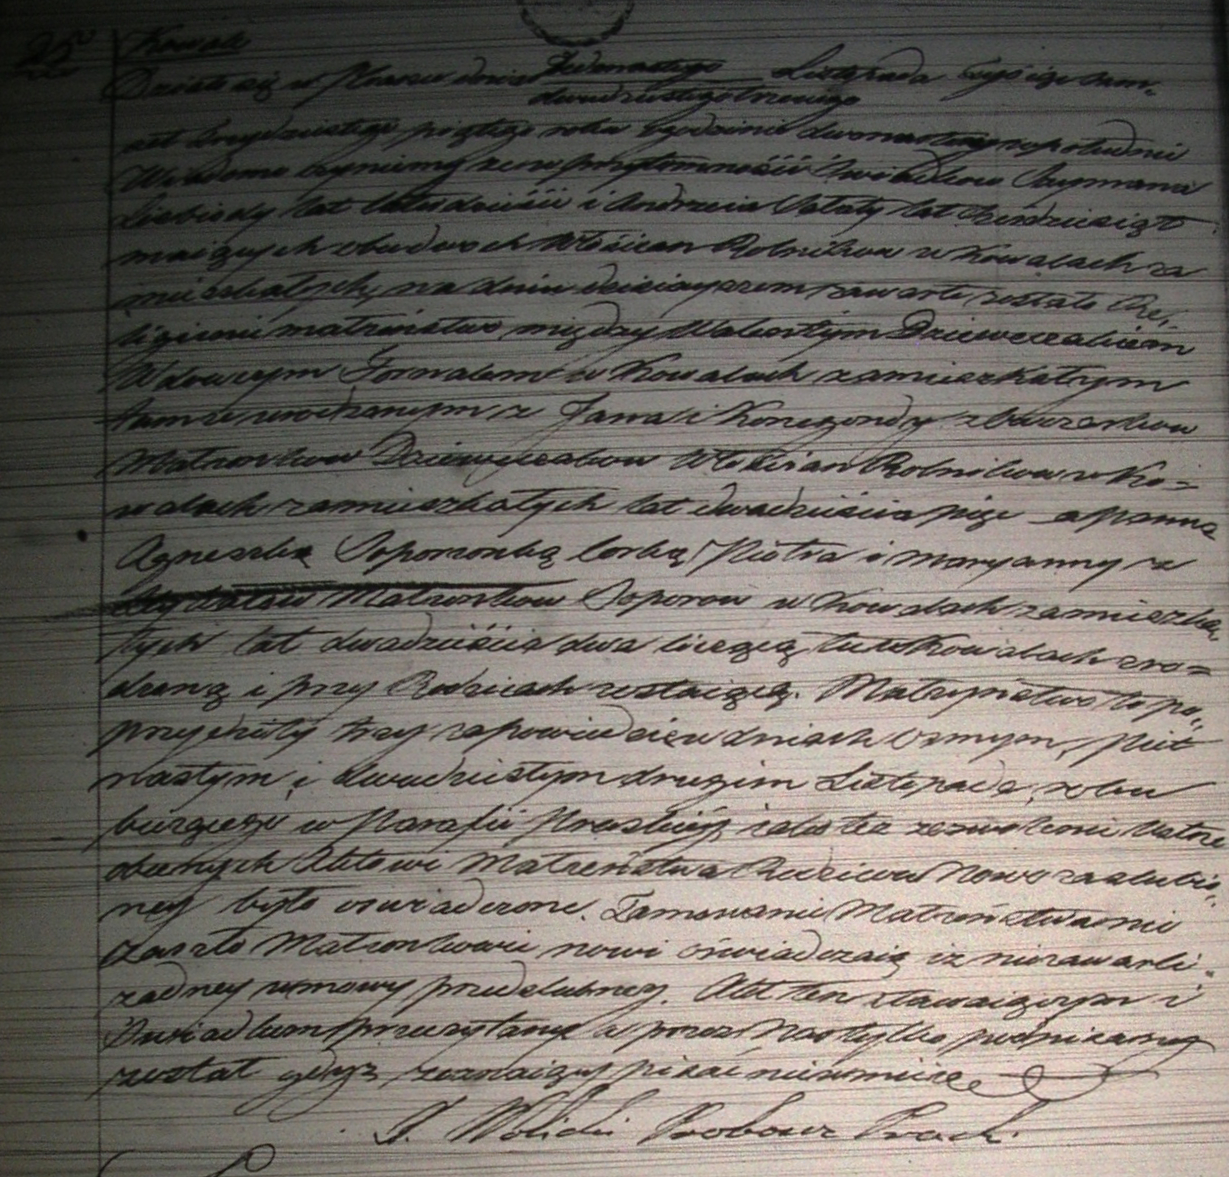 25
Kowale
Działo się w Praszce dnia Jedenastego dwudziestego trzeciego Listopada Tysiąc ośm-
set trzydziestego piątego roku o godzinie dwonastey w południe
Wiadomo czyniemy że w przytomności Swiadków Szymana
lat i Andrzeia lat czterdzieści
maiących obudwoch Włościan Rolników w Kowalach za
mieszkałych, na dniu dzisieyszem zawarte zostało Re-
ligiine małżeństwo między Walentym Dziewczakiem
Wdowcym Fornalem w Kowalach zamieszkałym
tamże urodzonym z Jana i Konegondy
Małżonków Dziewczaków Włościan Rolników w Ko=
walach zamieszkałych lat dwadzieścia pięć a panną
Agneszką Soporzonką Corką Piotra i Maryanny z
Małżonków Soporow w Kowalach zamieszka
łych lat dwadzieścia dwa liczącą tu w Kowalach zro=
dzoną i przy Rodzicach zostaiącą. Małżyństwo to po-
przydziły trzy zapowiedzie w dniach Osmym, Piet
nastym i dwudziestym drugim Listopada, roku
bieżącego w Parafii Praskiey, iako też zezwolenie ustne
obecnych Aktowi Małżeństwa Rodziców Nowozaslubio-
ney było oswiadczone. Tamowanie Małżeństwa nie
zaszło Małżonkowie nowi oświadczaią iż niezawarli
żadney umowy przedslubney. Akt ten stawaiącym i
Swiadkom przeczytany a przez Nas tylko podpisany
został gdyż stawaiący pisać nieumieie
J. Wolicki Proboszcz Praszki